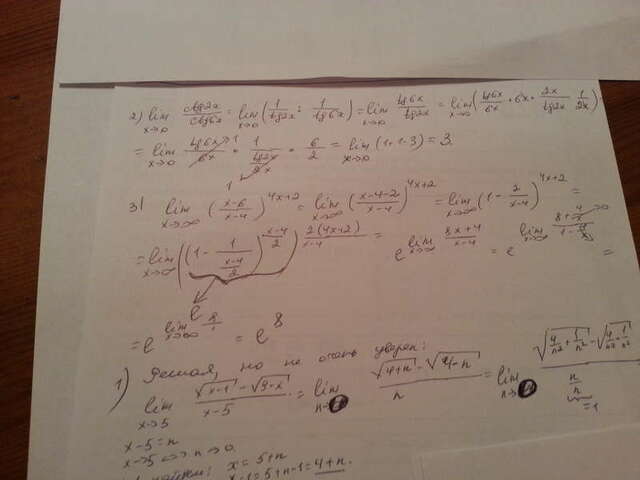 2) lim x→0 ctg2x/ctg6x = lim x→0 (1/tg2x : 1/tg6x) = lim x→0 tg6x/tg2x = lim x→0 (tg6x/6x · 6x · 2x/tg2x · 1/2x)
= lim x→0 tg6x/6x →1 · 1/(tg2x/2x) · 6/2 = lim x→0 (1·1·3) = 3
1
3) lim x→∞ (x-6/x-4)^4x+2 = lim x→∞ (x-4-2/x-4)^4x+2 = lim x→∞ (1 - 2/x-4)^4x+2 =
= lim x→∞ ((1 - 1/(x-4/2))^x-4/2)^2(4x+2)/x-4 = e^lim x→∞ 8x+4/x-4 = e^lim x→∞ 8+4/x →0 / 1-4/x =
e
= e^lim x→∞ 8/1 = e^8
1) Решал, но не очень уверен:
lim x→5 √x-1 - √9-x / x-5 = lim n→0 √4+n - √4-n / n = lim n→0 √4/n² + 1/n² - √4/n² - 1/n² / n/n
=1
x-5=n
x→5 <=> n→0
x=5+n
x-1=5+n-1=4+n.